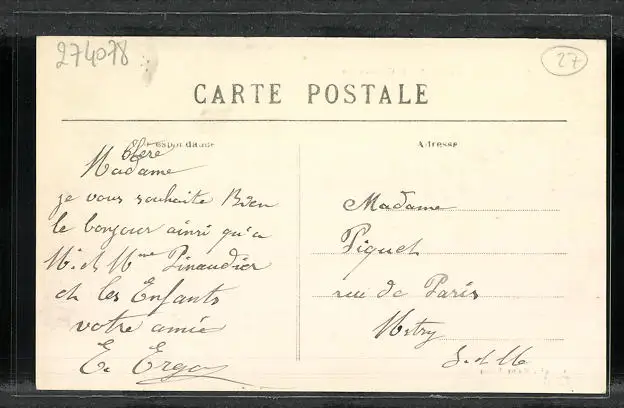 274078
27
CARTE POSTALE
Correspondance
Adresse
Chere
Madame
je vous souhaite Bien
le bonjour ainsi qu'a
M. et Mme Pinaudier
et les Enfants
votre amie
E. Ergo
Madame
Piquet
rue de Paris
Mitry
S. et M